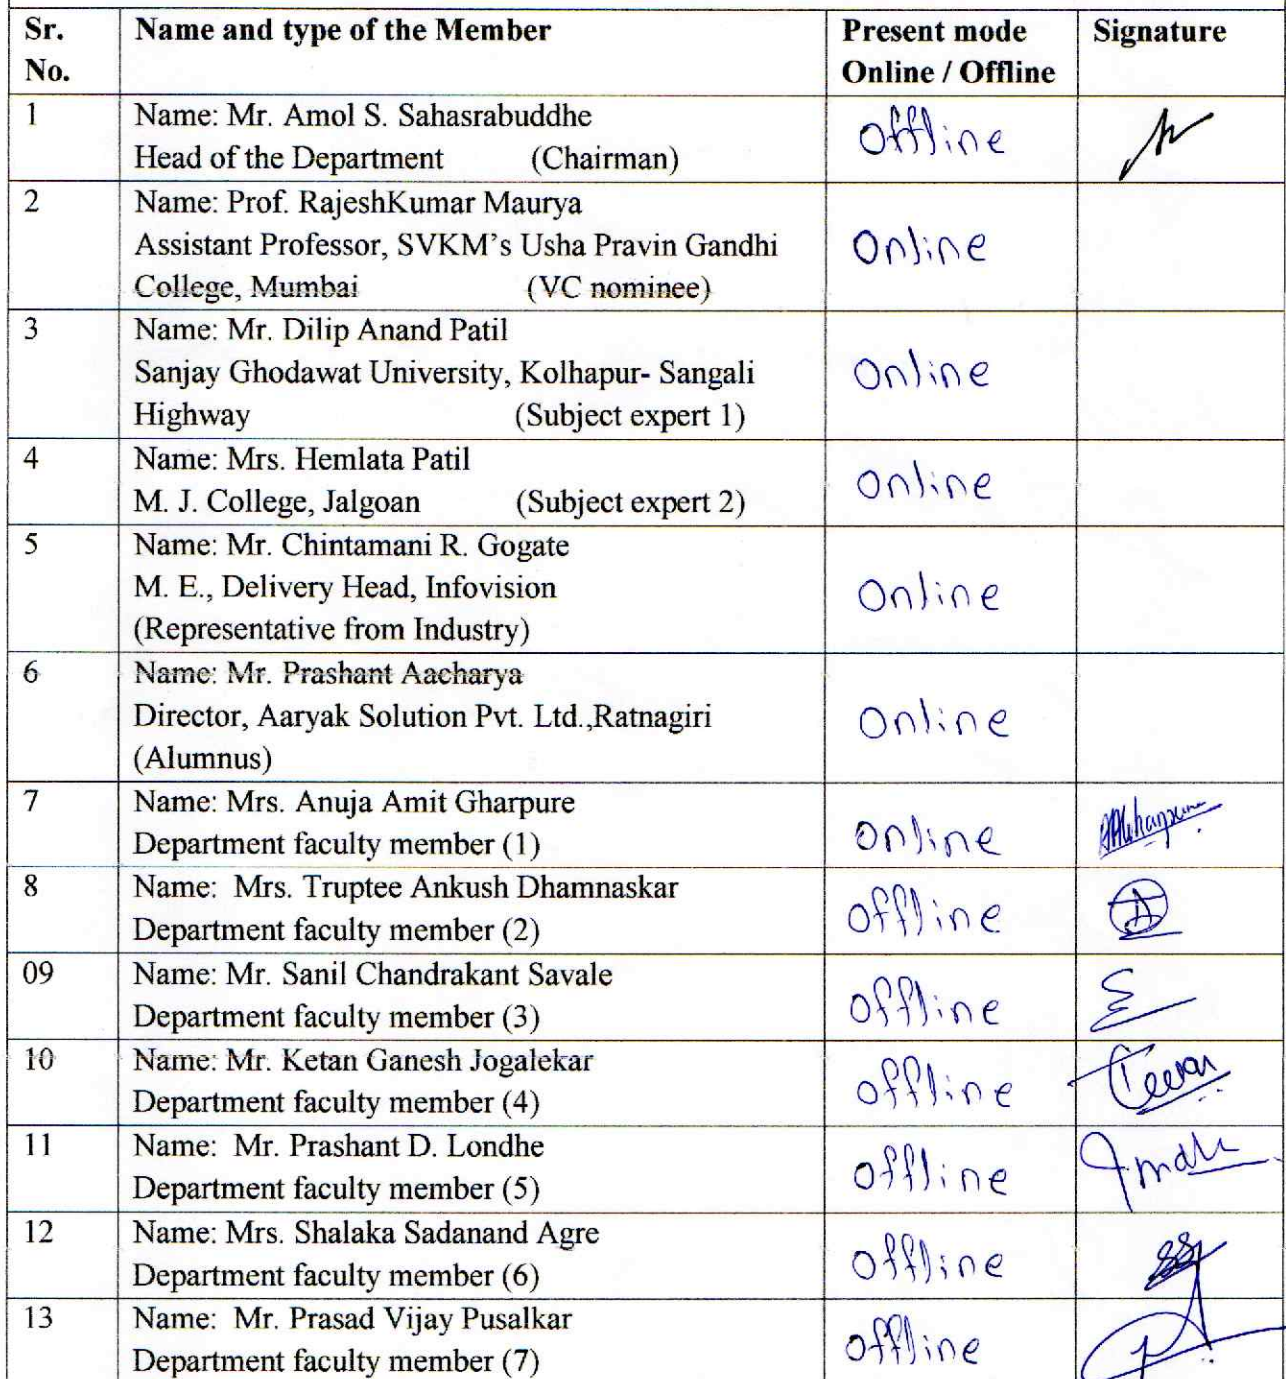 Sr. Name and type of the Member Present mode Signature
No. Online / Offline
1 Name: Mr. Amol S. Sahasrabuddhe Offline
Head of the Department (Chairman)
2 Name: Prof. RajeshKumar Maurya
Assistant Professor, SVKM's Usha Pravin Gandhi Online
College, Mumbai (VC nominee)
3 Name: Mr. Dilip Anand Patil
Sanjay Ghodawat University, Kolhapur- Sangali Online
Highway (Subject expert 1)
4 Name: Mrs. Hemlata Patil Online
M. J. College, Jalgoan (Subject expert 2)
5 Name: Mr. Chintamani R. Gogate
M. E., Delivery Head, Infovision Online
(Representative from Industry)
6 Name: Mr. Prashant Aacharya
Director, Aaryak Solution Pvt. Ltd.,Ratnagiri Online
(Alumnus)
7 Name: Mrs. Anuja Amit Gharpure
Department faculty member (1) Online
8 Name: Mrs. Truptee Ankush Dhamnaskar Offline
Department faculty member (2)
09 Name: Mr. Sanil Chandrakant Savale
Department faculty member (3) Offline
10 Name: Mr. Ketan Ganesh Jogalekar
Department faculty member (4) Offline
11 Name: Mr. Prashant D. Londhe
Department faculty member (5) Offline
12 Name: Mrs. Shalaka Sadanand Agre
Department faculty member (6) Offline
13 Name: Mr. Prasad Vijay Pusalkar
Department faculty member (7) Offline